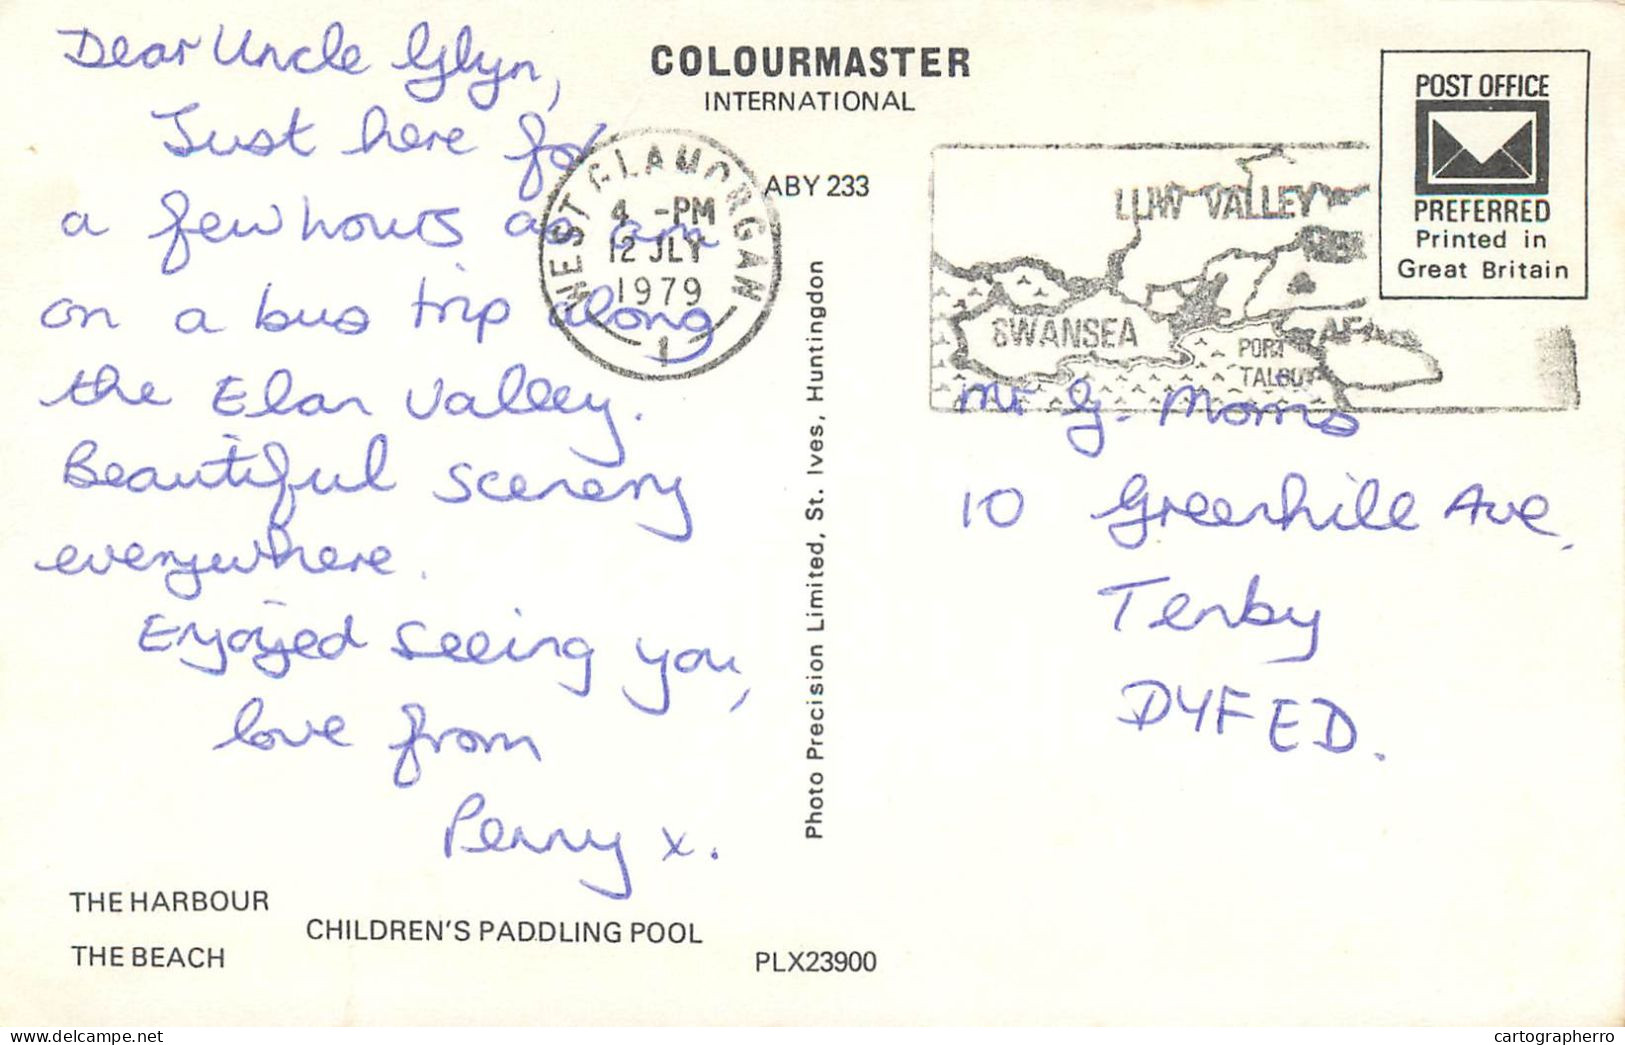 Dear Uncle Glyn,
Just here for
a few hours as am
on a bus trip along
the Elan Valley.
Beautiful scenery
everywhere.
Enjoyed seeing you,
love from
Penny x.
THE HARBOUR
CHILDREN'S PADDLING POOL
THE BEACH
PLX23900
COLOURMASTER
INTERNATIONAL
ABY 233
WEST GLAMORGAN
4 -PM
12 JLY
1979
1
Photo Precision Limited, St. Ives, Huntingdon
VALLEY
SWANSEA
PORT
TALBOT
POST OFFICE
PREFERRED
Printed in
Great Britain
Mr G. Morris
10 Greenhill Ave,
Tenby
DYFED.
delcampe.net
cartographerro